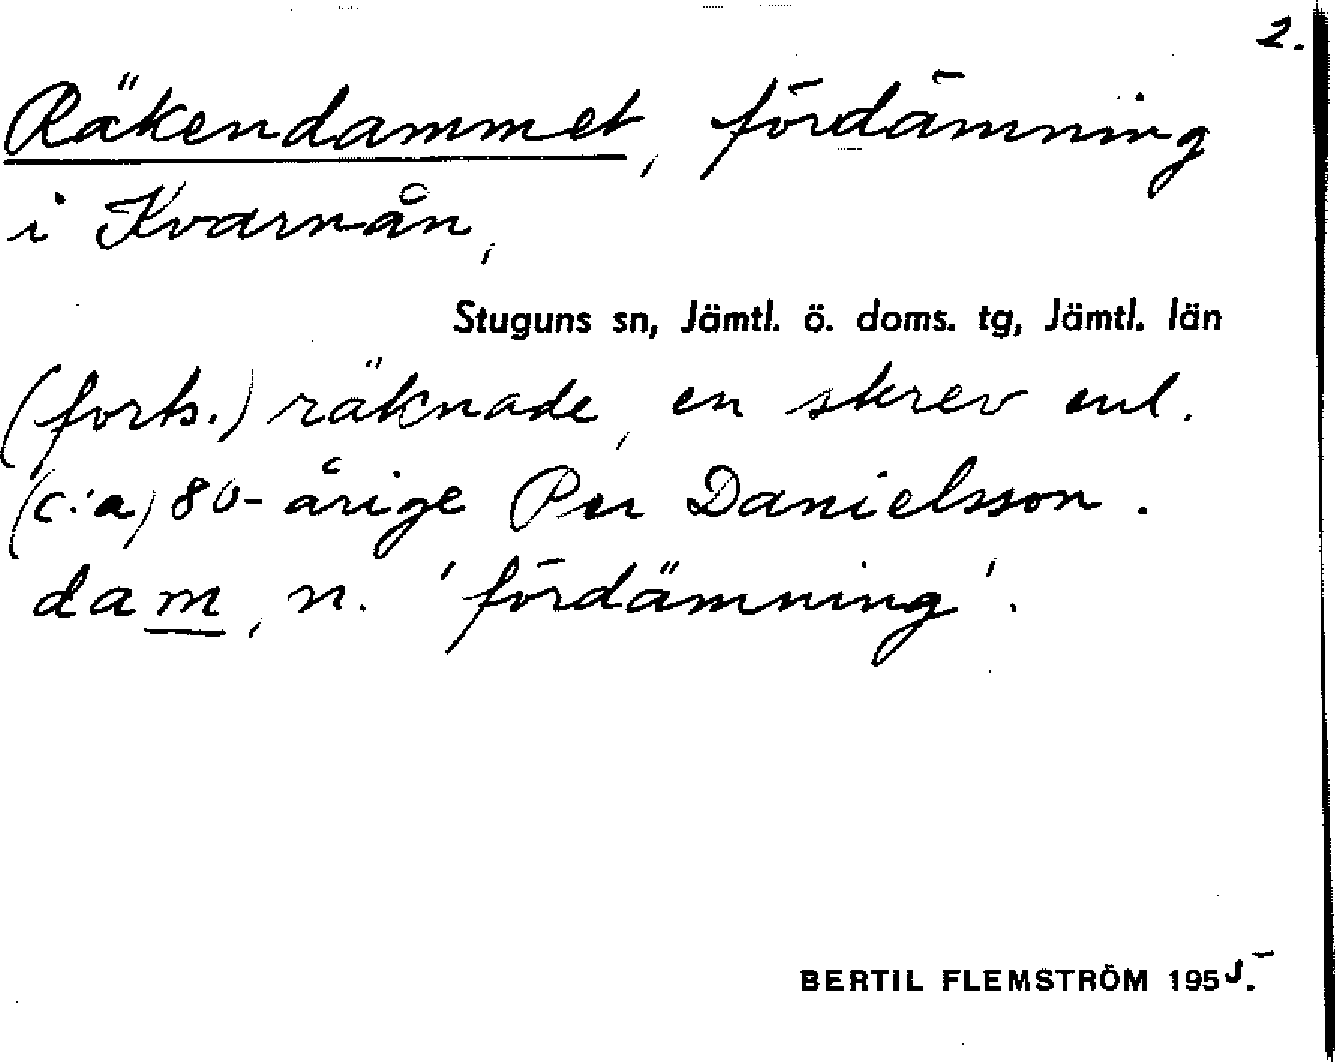 2.
Räkendammet, fördämning
i Kvarnån,
Stuguns sn, Jämtl. ö. doms. tg, Jämtl. län
(forts.) räknade, en skrev enl.
(c:a) 80-årige Per Danielsson.
dam, n. 'fördämning'.
BERTIL FLEMSTRÖM 1955.